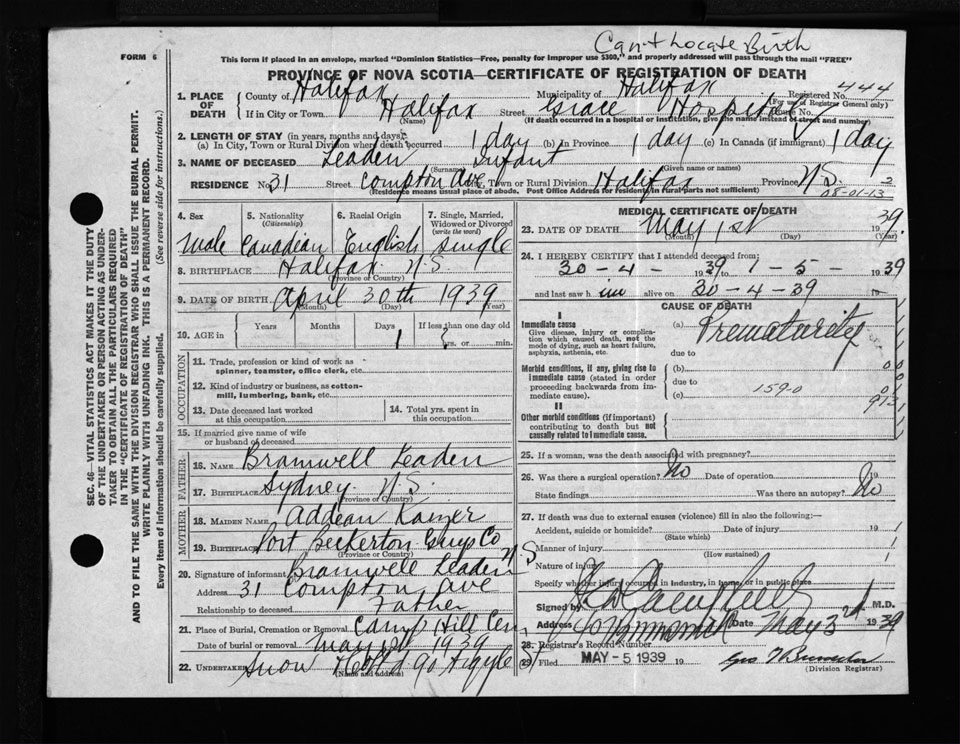 Can't Locate Birth
FORM 6
This form if placed in an envelope, marked "Dominion Statistics—Free, penalty for improper use $300," and properly addressed will pass through the mail "FREE"
PROVINCE OF NOVA SCOTIA—CERTIFICATE OF REGISTRATION OF DEATH
1. PLACE OF DEATH County of Halifax Municipality of Halifax Registered No. 444
(For use of Registrar General only)
If in City or Town Halifax Street Grace Hospital House No.
(Name) (If death occurred in a hospital or institution, give the name instead of street and number)
2. LENGTH OF STAY (in years, months and days):
(a) In City, Town or Rural Division where death occurred 1 day (b) In Province 1 day (c) In Canada (if immigrant) 1 day
3. NAME OF DECEASED Leaden Infant
(Surname) (Given name or names)
RESIDENCE No. 31 Street Compton Ave City, Town or Rural Division Halifax Province N.S. 2
(Residence means usual place of abode. Post Office address for residents in rural parts not sufficient) 08-01-13
4. Sex Male
5. Nationality (Citizenship) Canadian
6. Racial Origin English
7. Single, Married, Widowed or Divorced (write the word) Single
8. BIRTHPLACE Halifax N.S.
(Province or Country)
9. DATE OF BIRTH April 30th 1939
(Month) (Day) (Year)
10. AGE in Years Months Days 1 If less than one day old hrs. or min.
OCCUPATION
11. Trade, profession or kind of work as spinner, teamster, office clerk, etc.
12. Kind of industry or business, as cotton-mill, lumbering, bank, etc.
13. Date deceased last worked at this occupation
14. Total yrs. spent in this occupation
15. If married give name of wife or husband of deceased
FATHER
16. NAME Bramwell Leaden
17. BIRTHPLACE Sydney N.S.
(Province or Country)
MOTHER
18. MAIDEN NAME Addean Kaizer
19. BIRTHPLACE Port Beckerton Guys Co N.S
(Province or Country)
20. Signature of informant Bramwell Leaden
Address 31 Compton Ave
Relationship to deceased Father
21. Place of Burial, Cremation or Removal Camp Hill Cem
Date of burial or removal 1939
22. UNDERTAKER Snow 90 Argyle St
(Name and address)
MEDICAL CERTIFICATE OF DEATH
23. DATE OF DEATH May 1st 1939.
(Month) (Day) (Year)
24. I HEREBY CERTIFY that I attended deceased from:
30-4-1939 to 1-5-1939
and last saw him alive on 30-4-39 19
CAUSE OF DEATH
I
Immediate cause
Give disease, injury or complication which caused death, not the mode of dying, such as heart failure, asphyxia, asthenia, etc.
(a) Prematurity
due to
Morbid conditions, if any, giving rise to immediate cause (stated in order proceeding backwards from immediate cause).
(b)
due to 159.0
(c)
II
Other morbid conditions (if important) contributing to death but not causally related to immediate cause.
25. If a woman, was the death associated with pregnancy?
26. Was there a surgical operation? No Date of operation 19
State findings Was there an autopsy? No
27. If death was due to external causes (violence) fill in also the following:—
Accident, suicide or homicide? Date of injury 19
(State which)
Manner of injury
(How sustained)
Nature of injury
Specify whether injury occurred in industry, in home, or in public place
Signed by M.D.
Address Date May 3rd 1939
28. Registrar's Record Number
29. Filed MAY-5 1939 19
(Division Registrar)
SEC. 46—VITAL STATISTICS ACT MAKES IT THE DUTY OF THE UNDERTAKER OR PERSON ACTING AS UNDERTAKER TO OBTAIN ALL THE PARTICULARS REQUIRED IN THE "CERTIFICATE OF REGISTRATION OF DEATH" AND TO FILE THE SAME WITH THE DIVISION REGISTRAR WHO SHALL ISSUE THE BURIAL PERMIT.
WRITE PLAINLY WITH UNFADING INK. THIS IS A PERMANENT RECORD.
Every item of information should be carefully supplied. (See reverse side for instructions.)